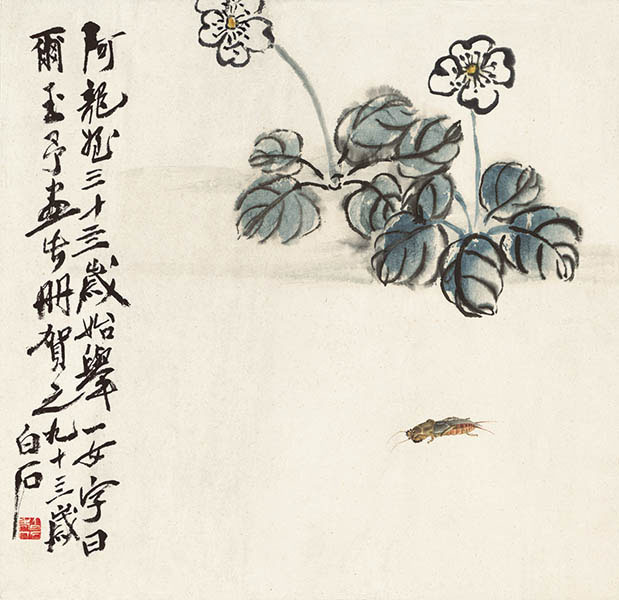 阿龍三十三歲始舉一女字曰
爾玉予畫虫冊賀之九十三歲
白石